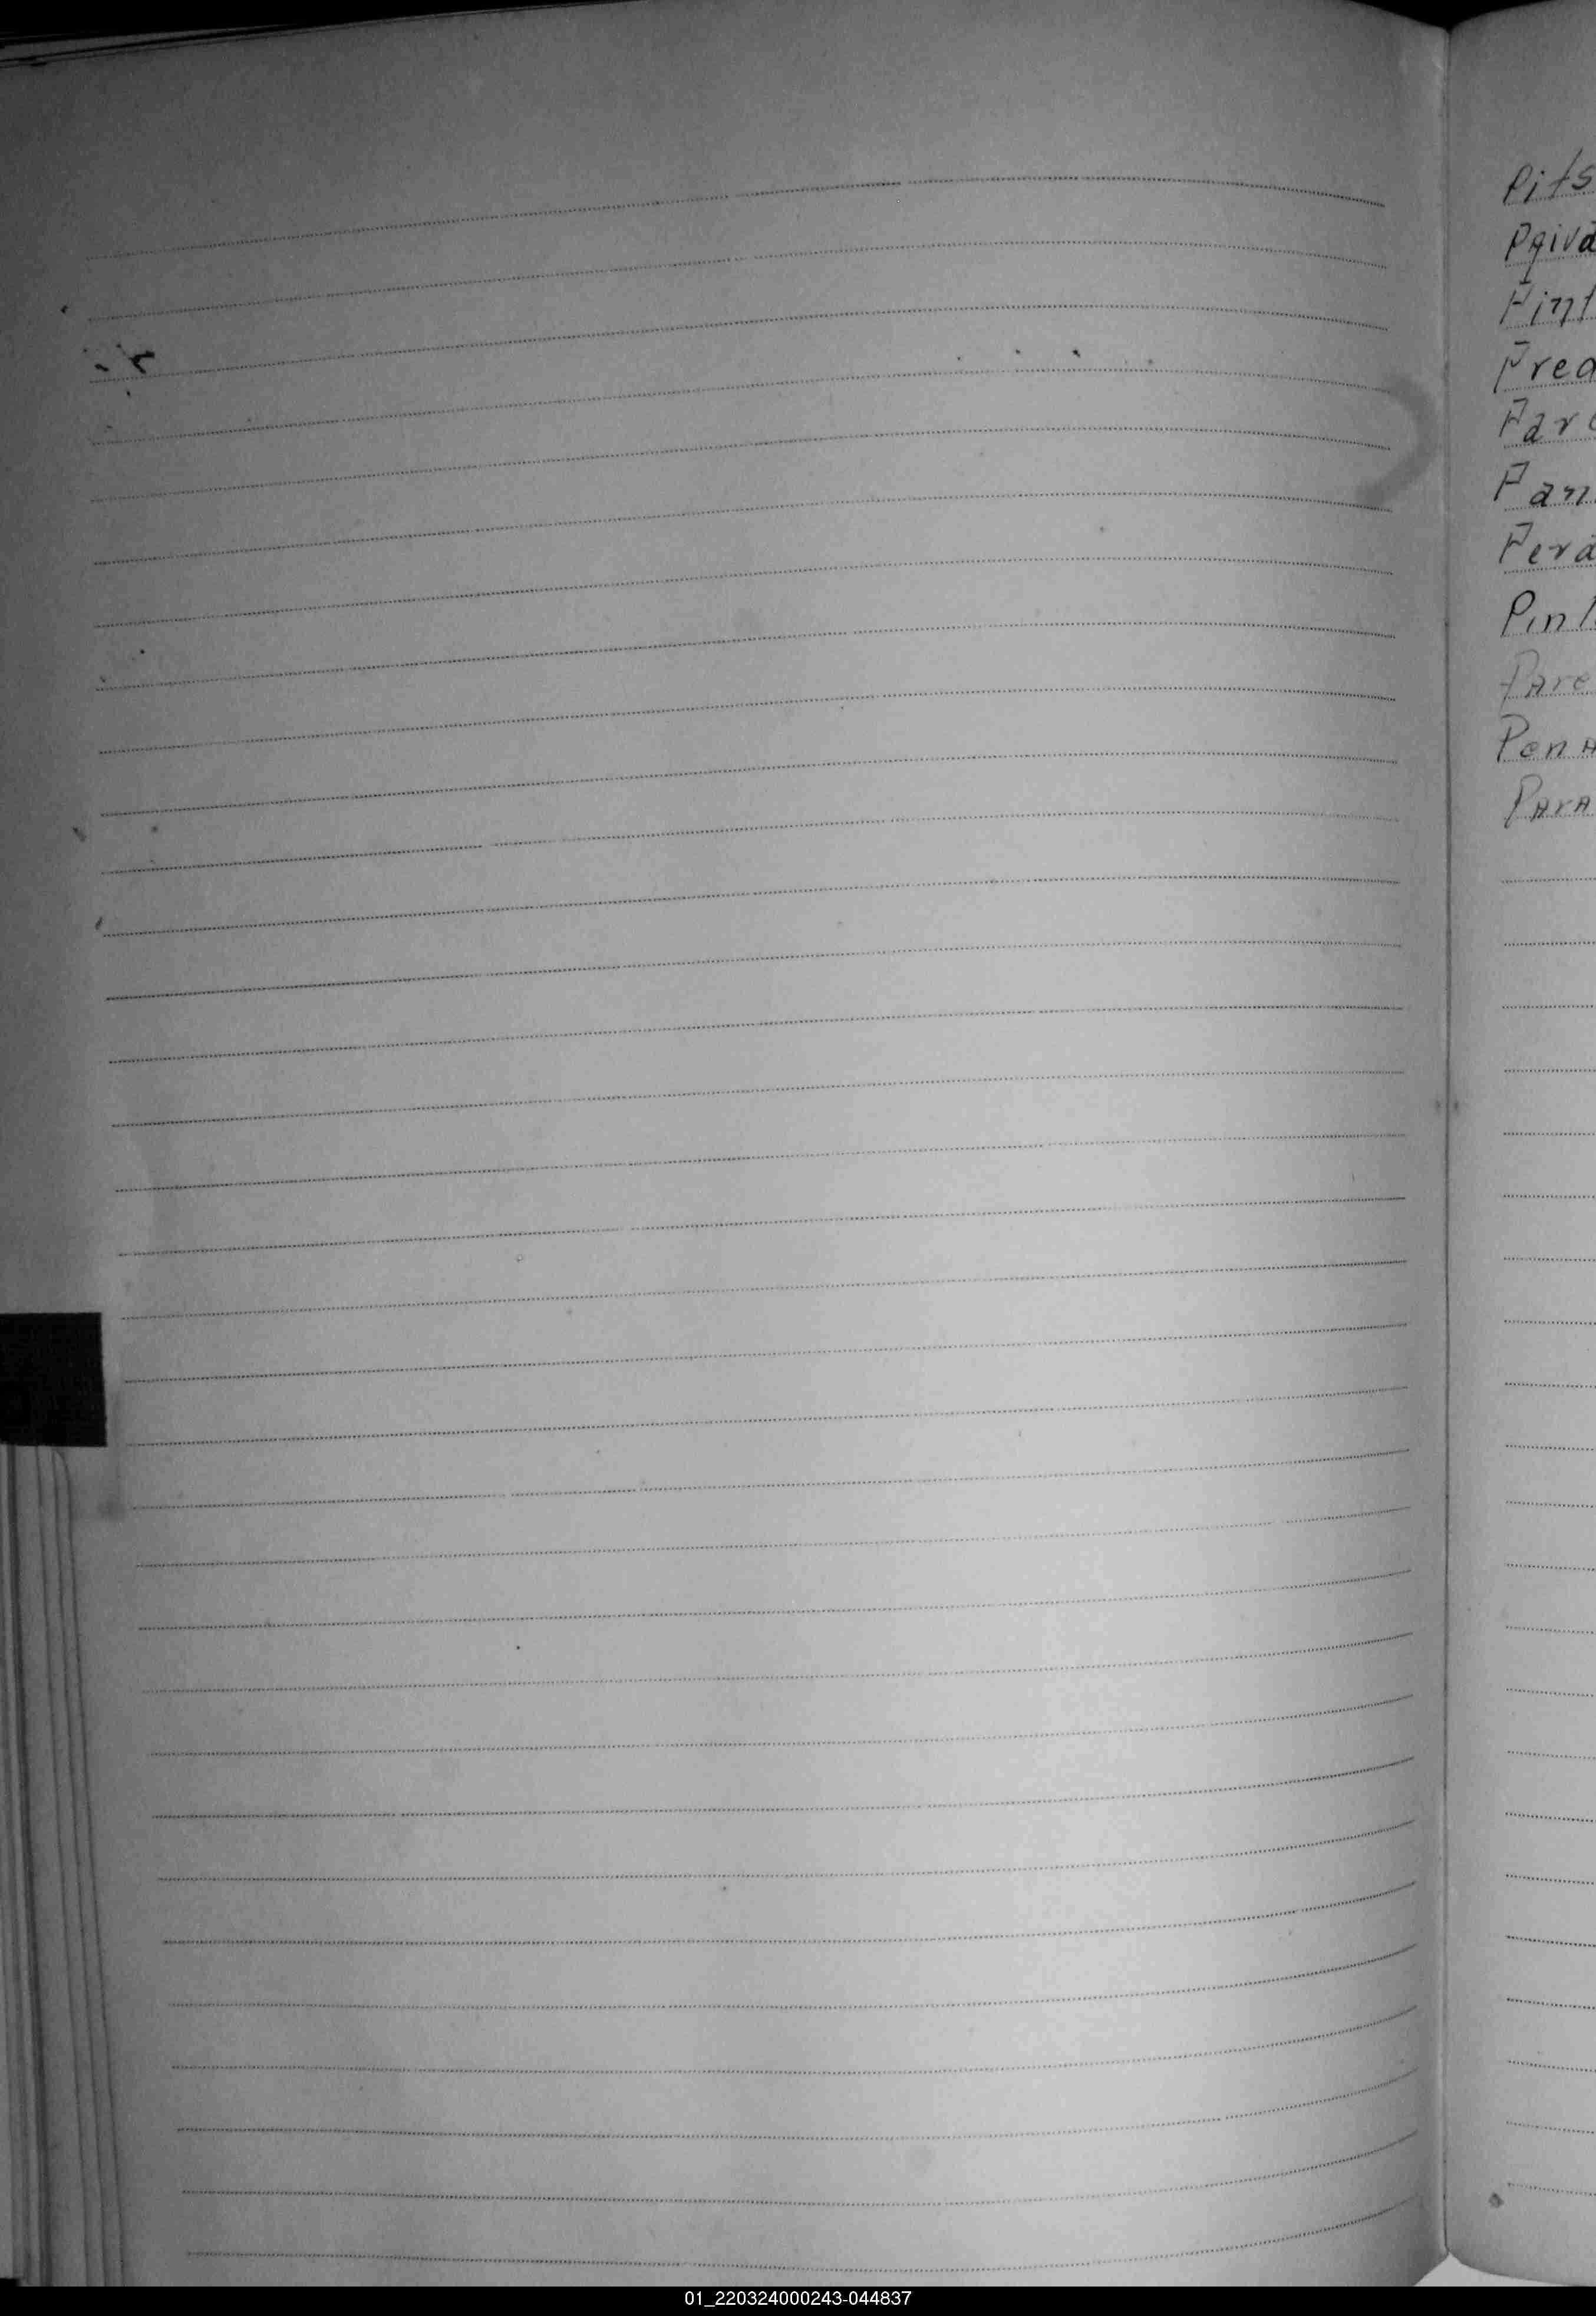 Pits
Paiva
Pint
Pred
Parc
Pan
Pera
Pint
Pare
Pena
Para
01_220324000243-044837